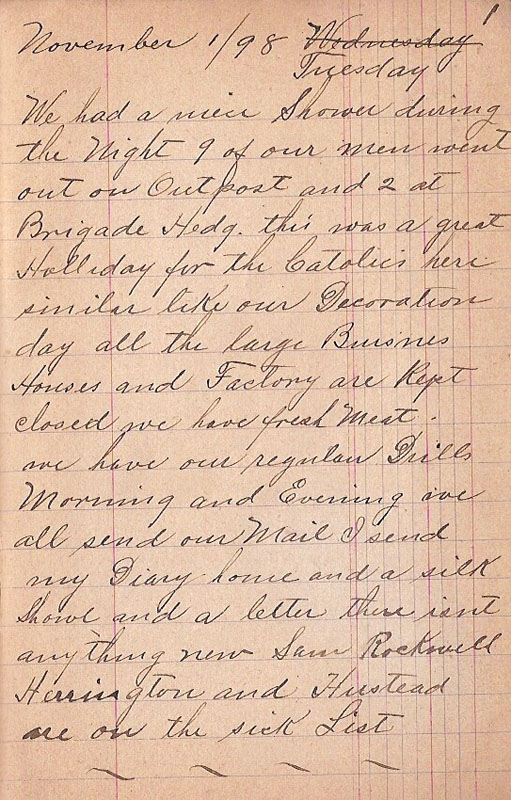 1
November 1/98 Wednesday
Tuesday
We had a nice Shower during
the Night 9 of our men went
out on Outpost and 2 at
Brigade Hedq. this was a great
Holliday for the Catolics here
similar like our Decoration
day all the large Buisnes
Houses and Factory are Kept
closed we have fresh Meat.
we have our regular Drills
Morning and Evening we
all send our Mail I send
my Diary home and a silk
Showl and a letter there isnt
anything new Sam Rockwell
Herrington and Hustead
are on the sick List